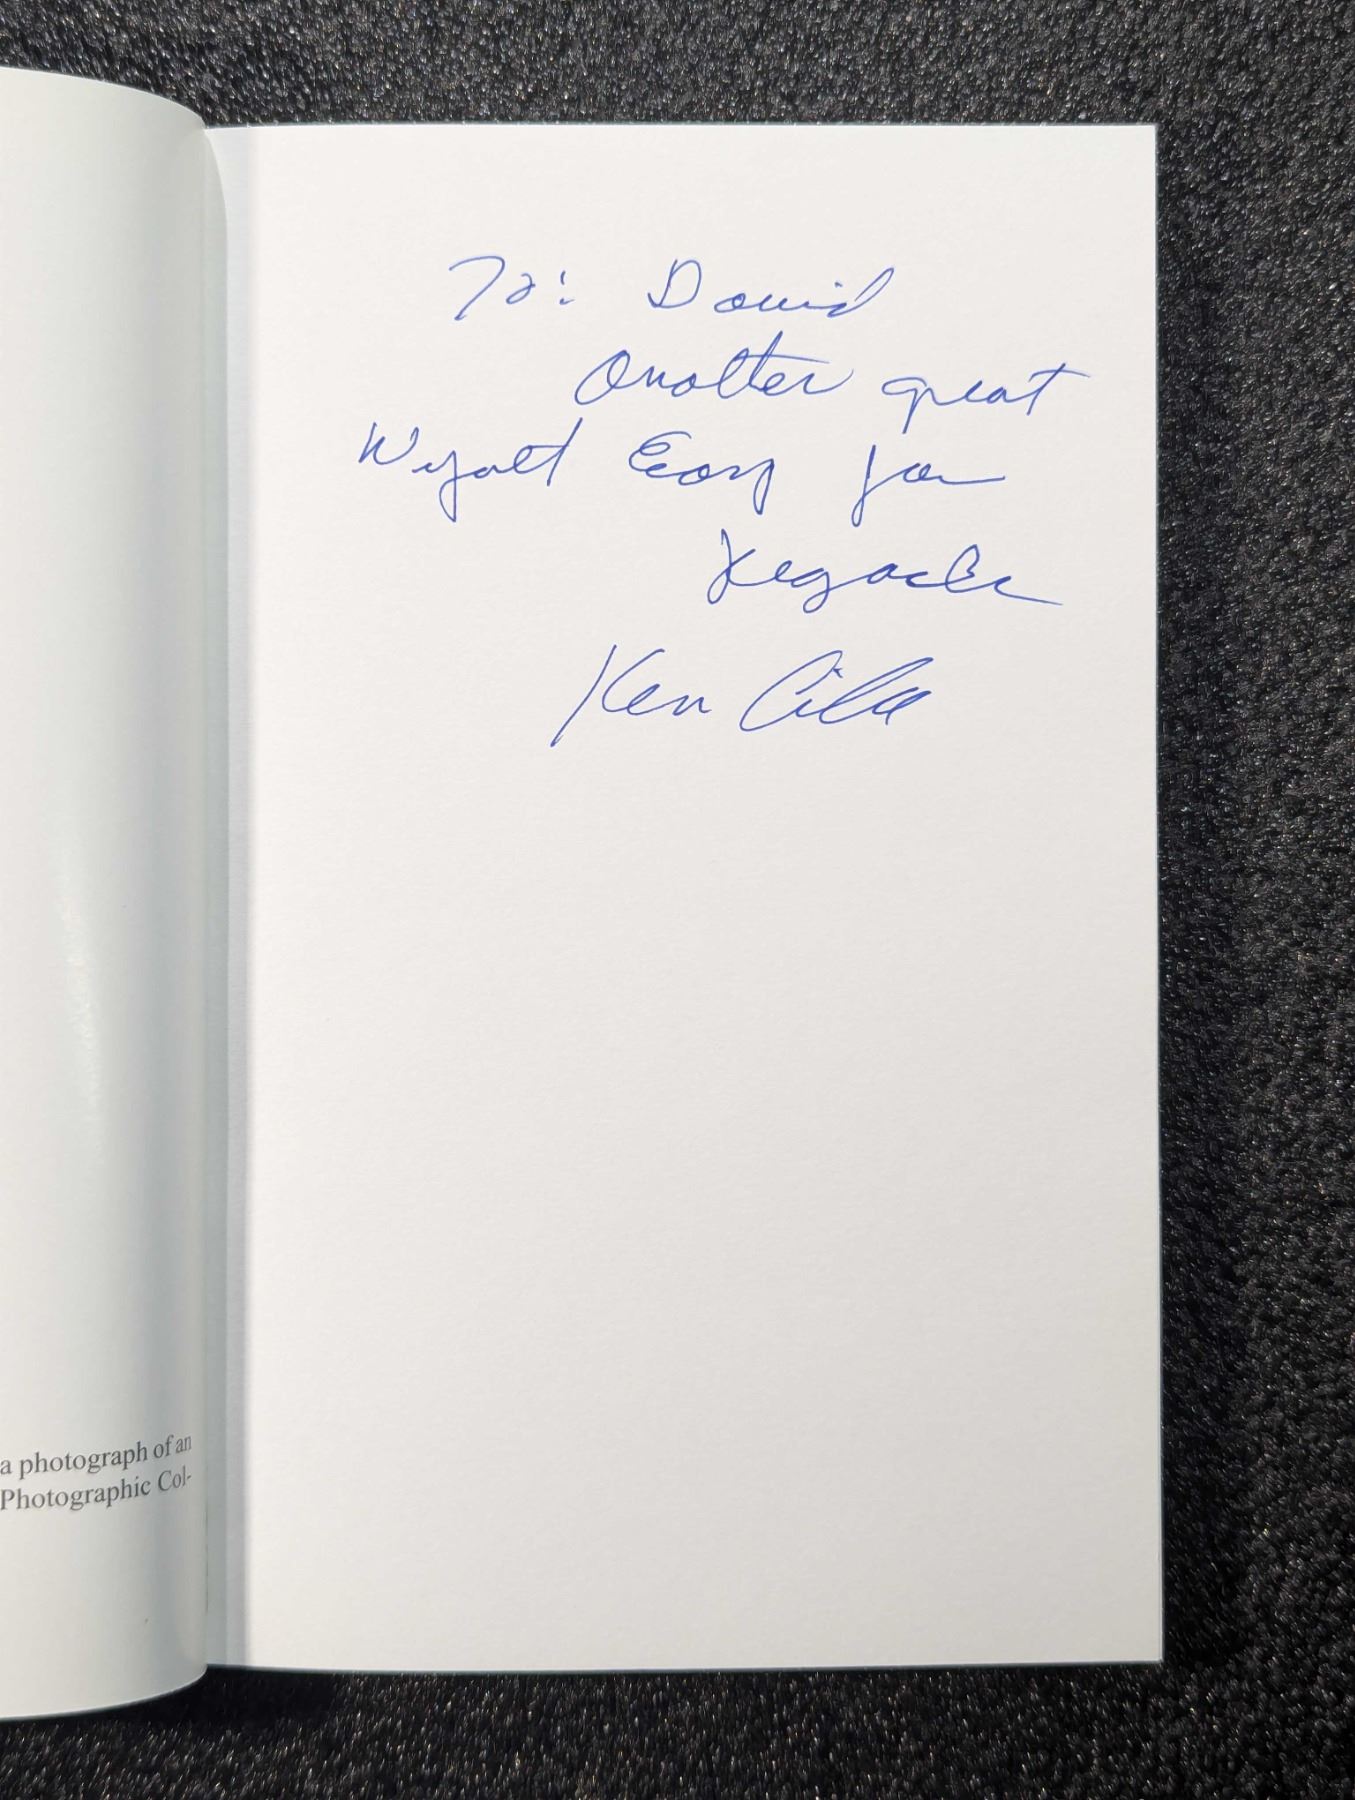 a photograph of an
Photographic Col-
To: David
Another great
Wyatt Earp for
Ken